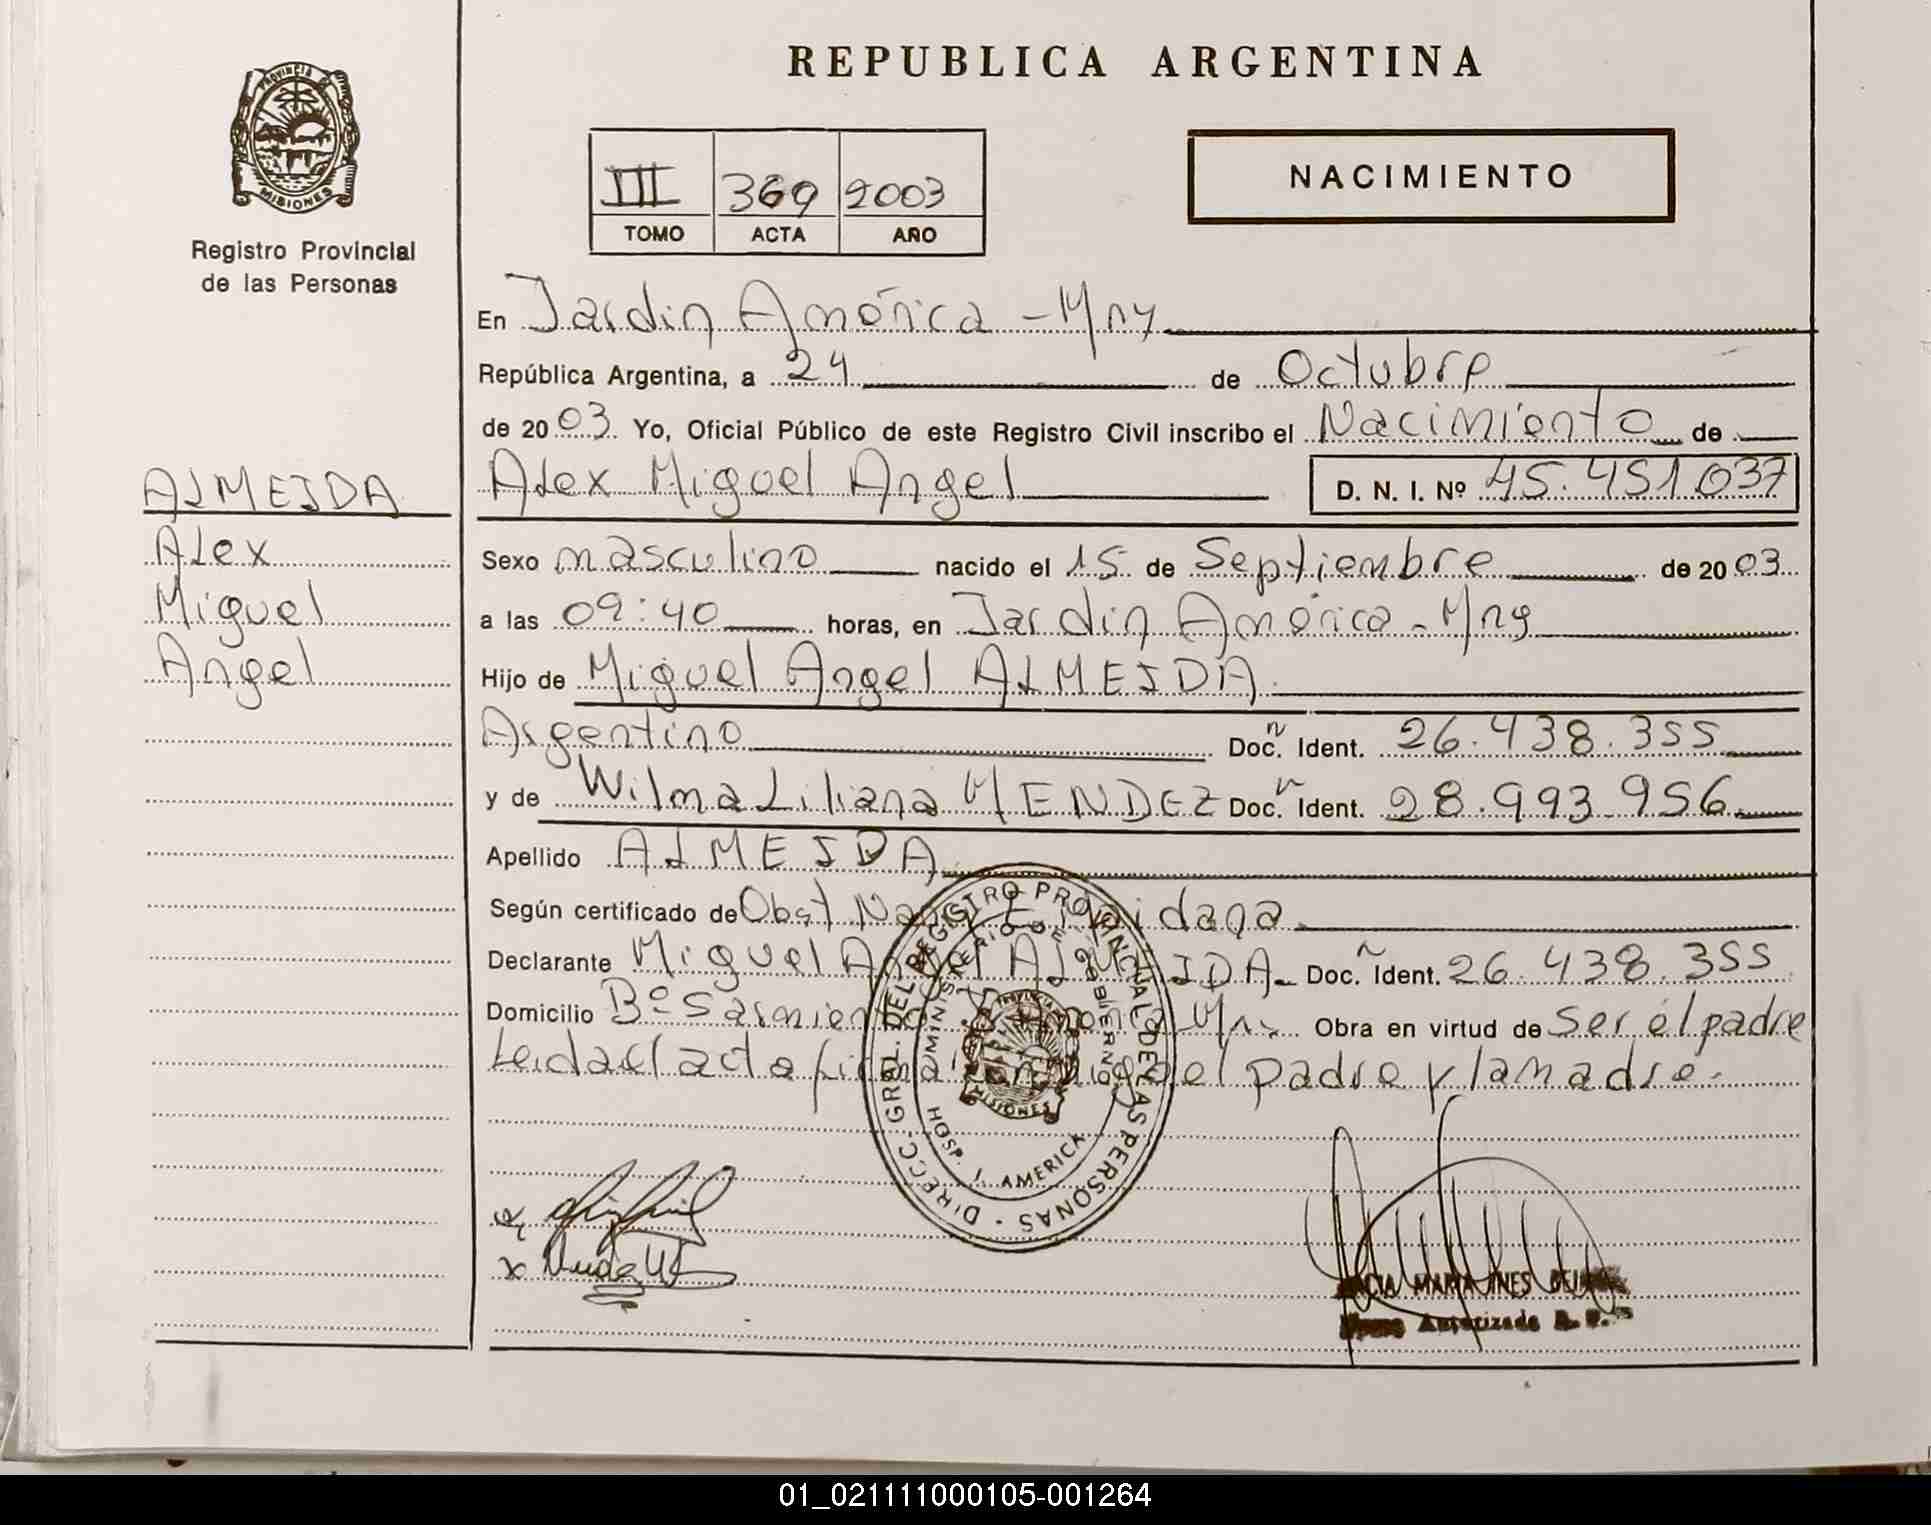 REPUBLICA ARGENTINA
PROVINCIA DE
MISIONES
Registro Provincial
de las Personas
III 369 2003
TOMO ACTA AÑO
NACIMIENTO
En Jardin América - Mny
República Argentina, a 24 de Octubre
de 2003 Yo, Oficial Público de este Registro Civil inscribo el Nacimiento de
Alex Miguel Angel D. N. I. Nº 45.451.037
ALMEIDA
Alex
Miguel
Angel
Sexo masculino nacido el 15 de Septiembre de 2003
a las 09:40 horas, en Jardin América - Mny
Hijo de Miguel Angel ALMEIDA
Argentino Doc. Ident. 26.438.355
y de Wilma Liliana MENDEZ Doc. Ident. 28.993.956
Apellido ALMEIDA
Según certificado de Obst
Declarante Miguel Angel ALMEIDA Doc. Ident. 26.438.355
Domicilio Bº Sarmiento Obra en virtud de ser el padre
Leida el acta el padre y la madre.
DIRECC. GRAL. DEL REGISTRO PROVINCIAL DE LAS PERSONAS
MINISTERIO DE GOBIERNO
PROVINCIA
MISIONES
HOSP. J. AMERICA
MARIA INES
Autorizada
01_021111000105-001264